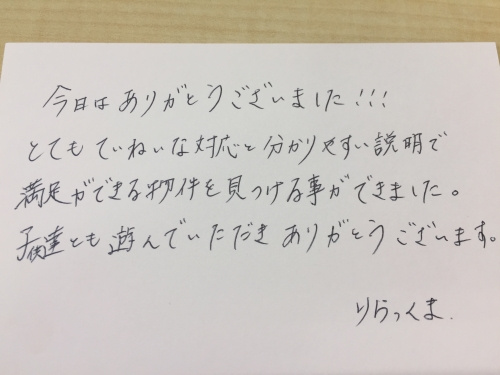 今日はありがとうございました!!!
とてもていねいな対応と分かりやすい説明で
満足ができる物件を見つける事ができました。
子供達とも遊んでいただきありがとうございます。
りらっくま.